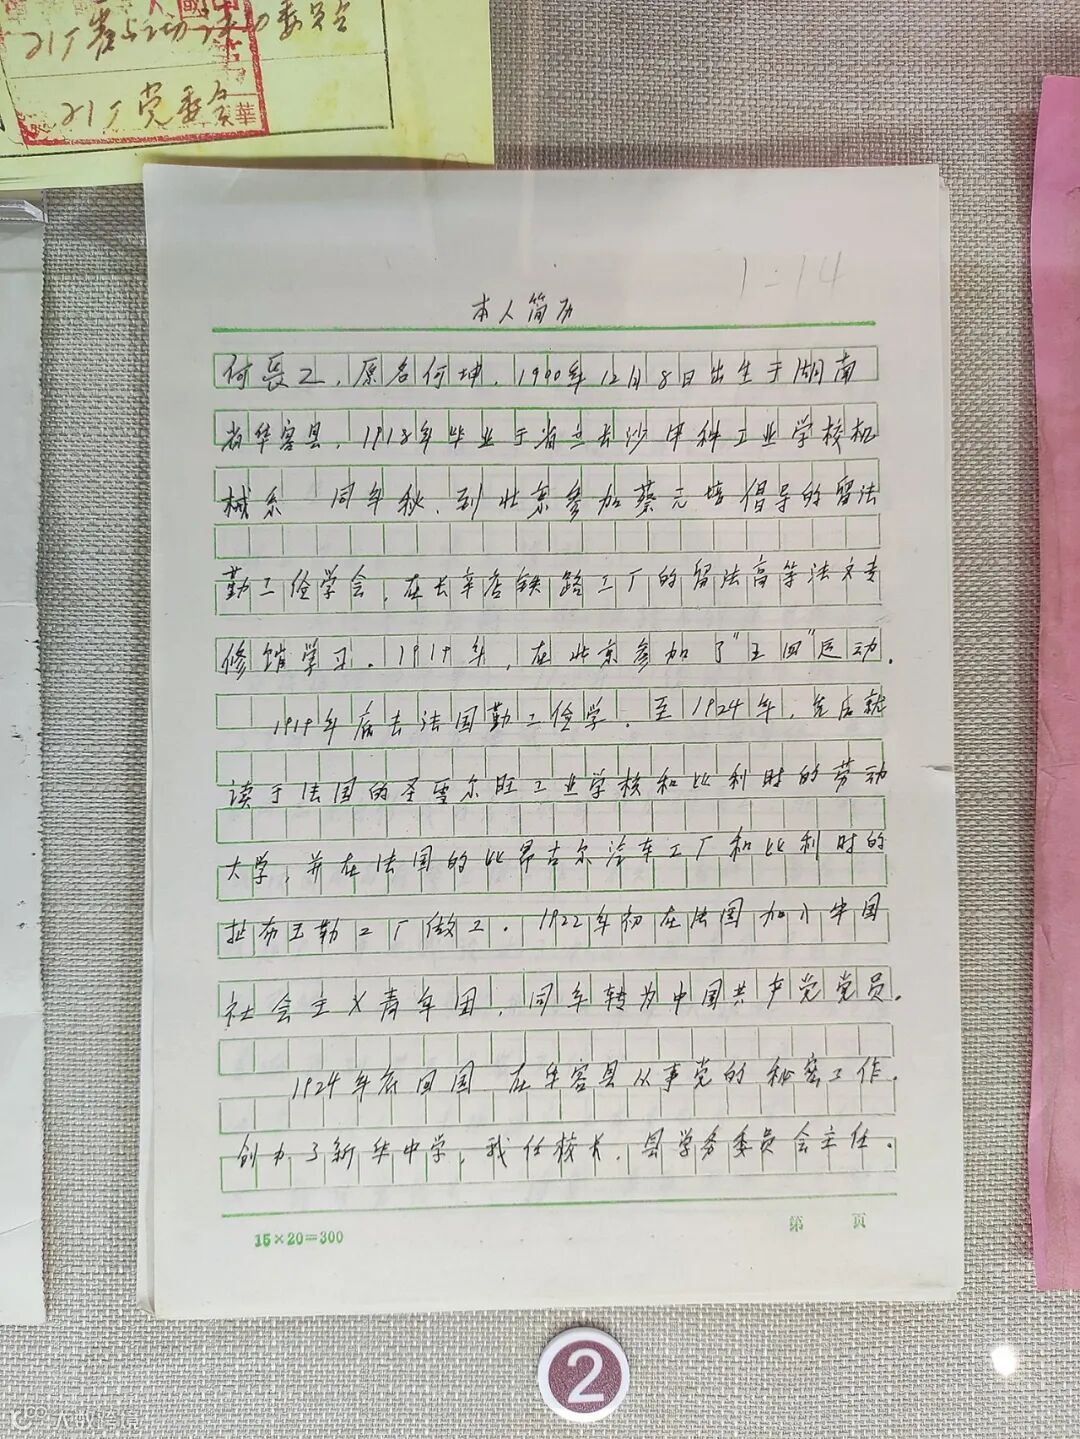 21厂劳动竞赛委员会
21厂党委会
華
1-14
本人简历
何长工，原名何坤，1900年12月8日出生于湖南
省华容县，1918年毕业于省立长沙甲种工业学校机
械系 同年秋，到北京参加蔡元培倡导的留法
勤工俭学会，在长辛店铁路工厂的留法高等法文专
修馆学习。1919年，在北京参加了"五四"运动。
1919年底去法国勤工俭学，至1924年，先后就
读于法国的圣雪尔旺工业学校和比利时的劳动
大学，并在法国的比昂古尔汽车工厂和比利时的
扯布玉勒工厂做工。1922年初在法国加入中国
社会主义青年团，同年转为中国共产党党员。
1924年底回国 在华容县从事党的秘密工作。
创办了新华中学，我任校长，县学务委员会主任。
15×20=300
第 页
2